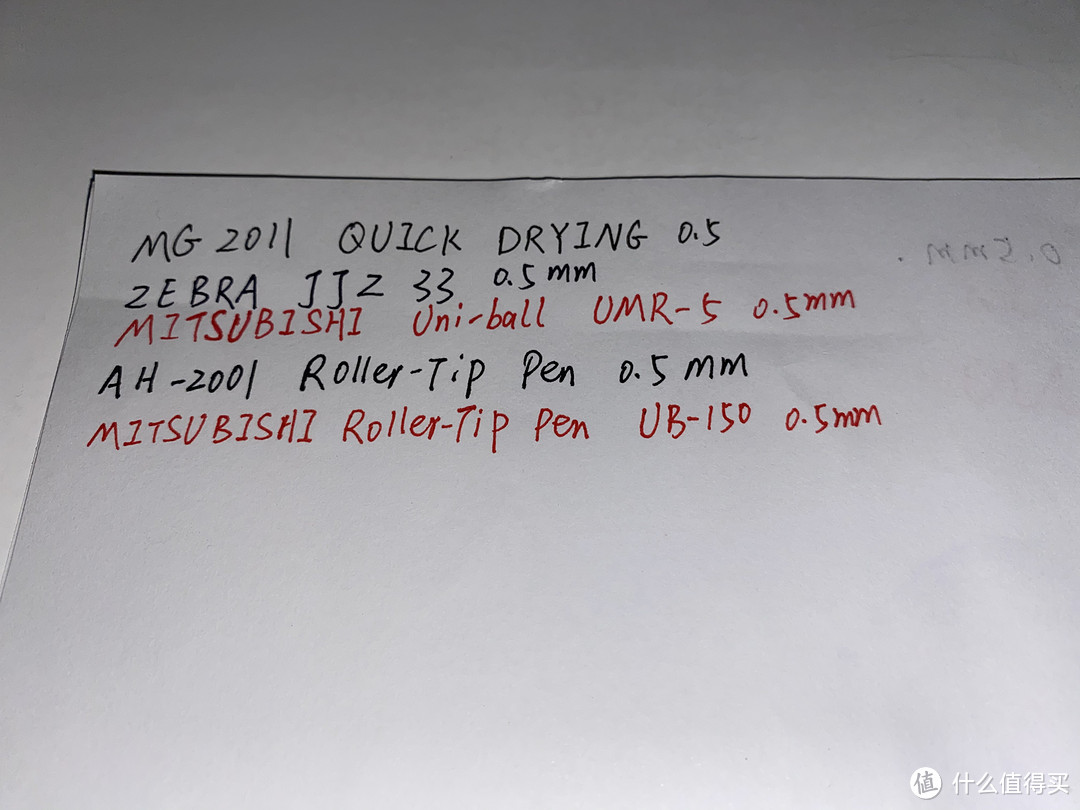 MG 2011 QUICK DRYING 0.5
ZEBRA JJZ 33 0.5mm
MITSUBISHI Uni-ball UMR-5 0.5mm
AH-2001 Roller-Tip Pen 0.5mm
MITSUBISHI Roller-Tip Pen UB-150 0.5mm
值 什么值得买